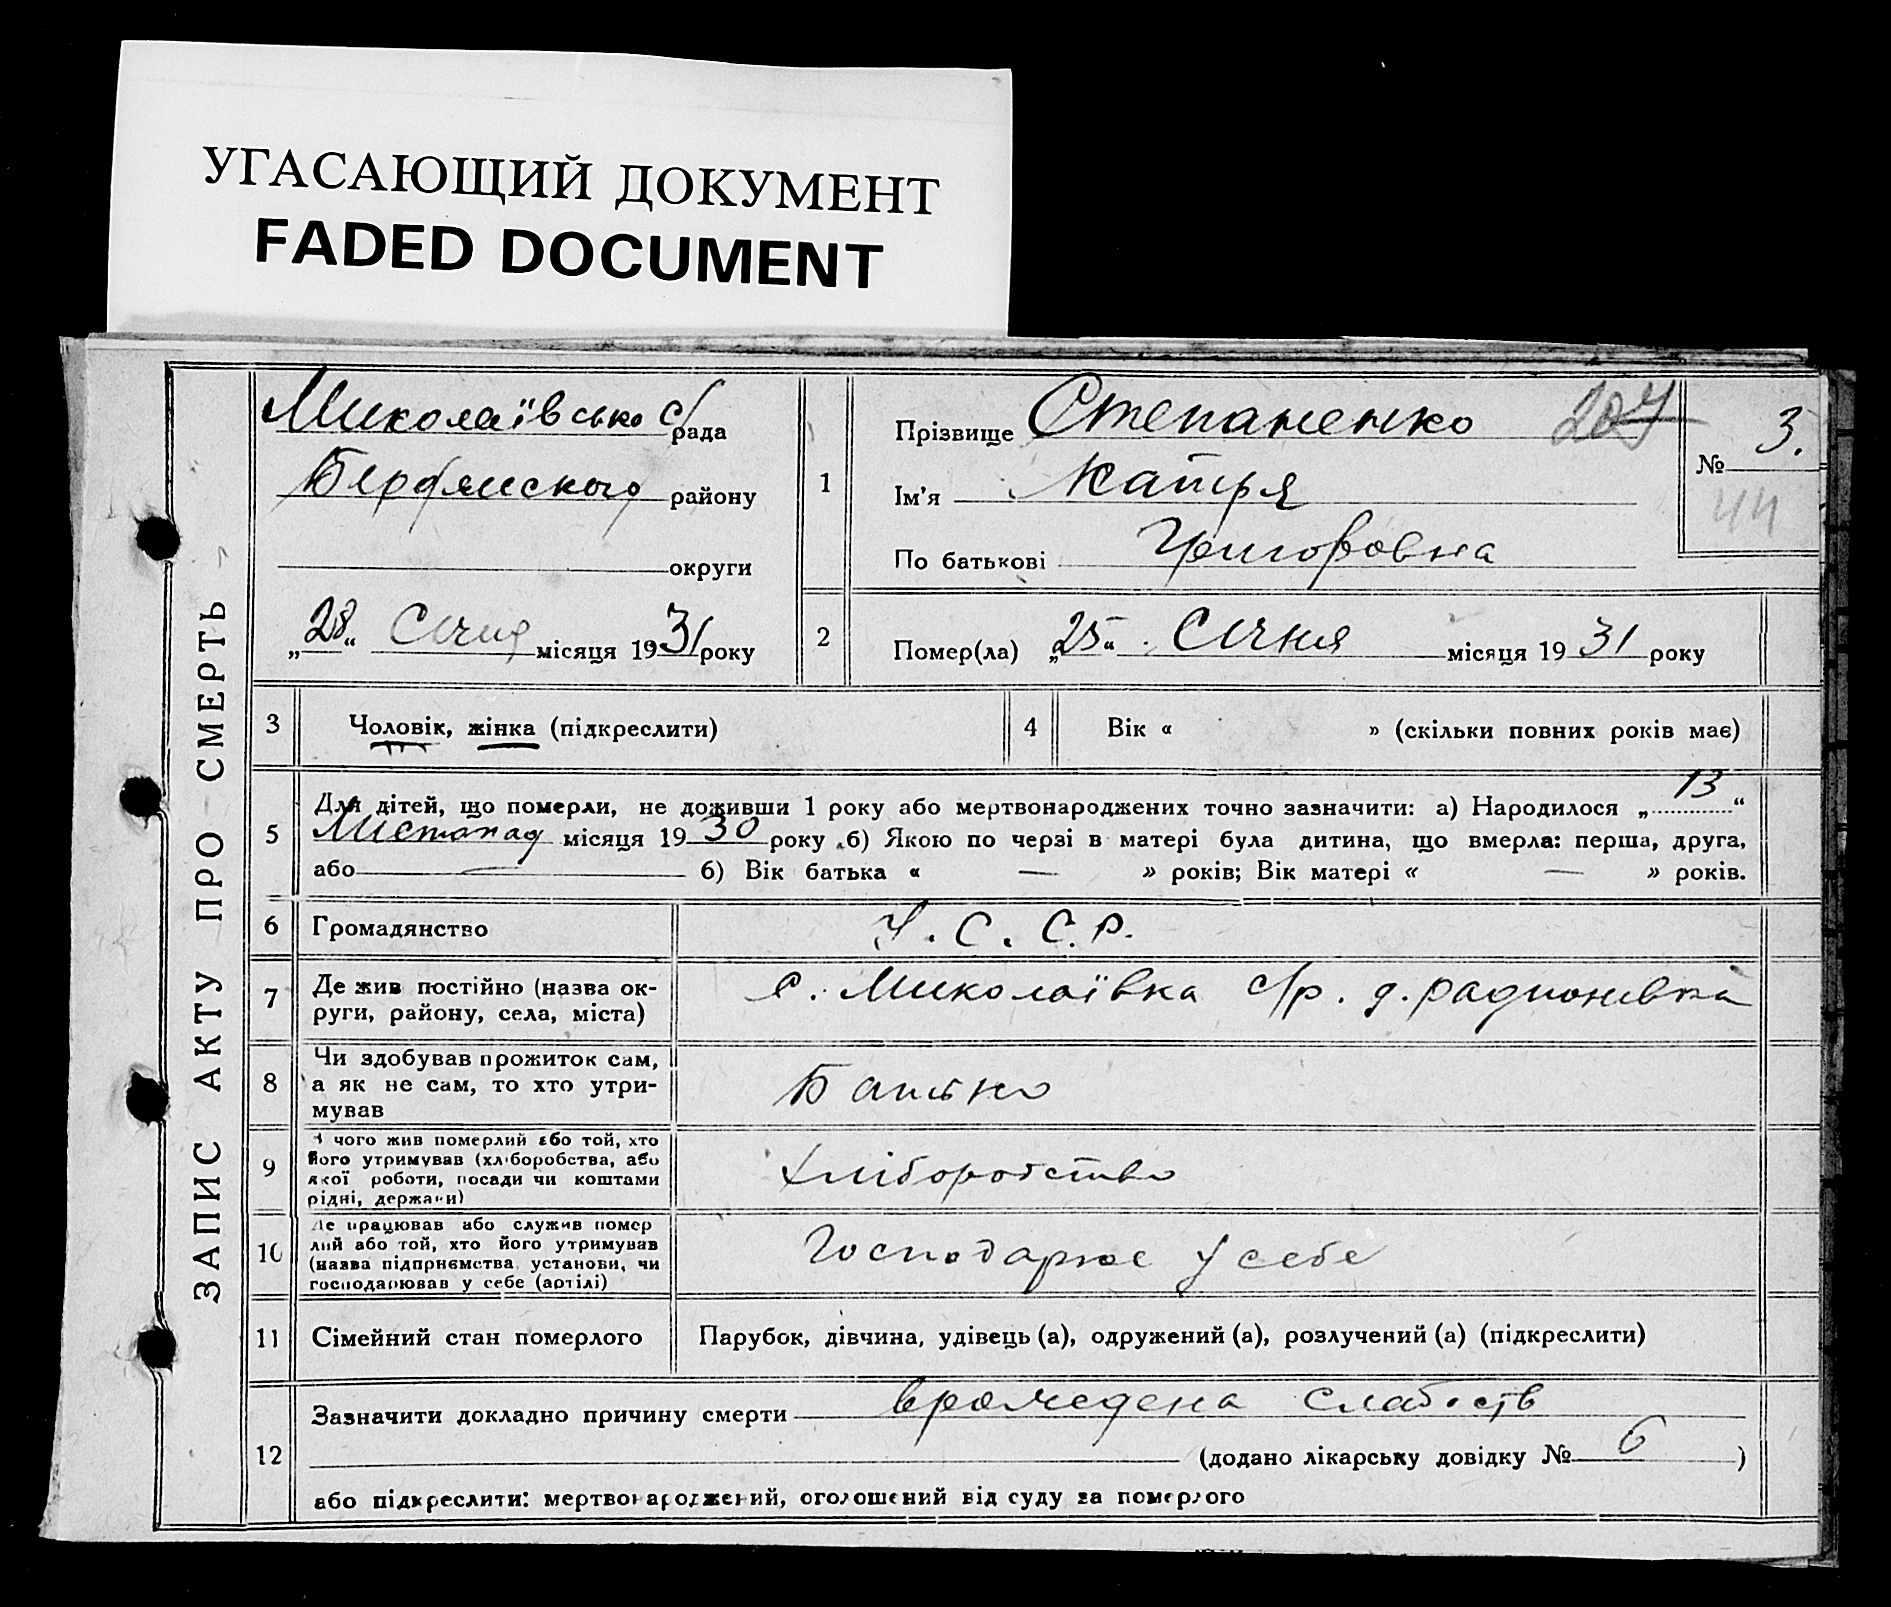 УГАСАЮЩИЙ ДОКУМЕНТ
FADED DOCUMENT
ЗАПИС АКТУ ПРО СМЕРТЬ
Миколаївсько с/рада
району
округи
„28“ Січня місяця 1931 року
1
Прізвище Степаненко
Ім'я Катря
По батькові Григоровна
207
№ 3.
44
2
Помер(ла) „25“ Січня місяця 1931 року
3 Чоловік, жінка (підкреслити)
4 Вік « » (скільки повних років має)
5 Для дітей, що померли, не доживши 1 року або мертвонароджених точно зазначити: а) Народилося „13“
Листопад місяця 1930 року б) Якою по черзі в матері була дитина, що вмерла: перша, друга,
або — б) Вік батька « — » років; Вік матері « — » років.
6 Громадянство У.С.С.Р.
7 Де жив постійно (назва ок-
руги, району, села, міста)
с. Миколаївка с/р. д. Радионивка
8 Чи здобував прожиток сам,
а як не сам, то хто утри-
мував
Батько
9 З чого жив померлий або той, хто
його утримував (хліборобства, або
якої роботи, посади чи коштами
рідні, держави)
Хліборобство
10 Де працював або служив помер
лий або той, хто його утримував
(назва підприємства, установи, чи
господарював у себе (артілі)
Господарює у себе
11 Сімейний стан померлого
Парубок, дівчина, удівець (а), одружений (а), розлучений (а) (підкреслити)
12 Зазначити докладно причину смерти врожедена слабость
(додано лікарську довідку № 6 )
або підкреслити: мертвонароджений, оголошений від суду за померлого